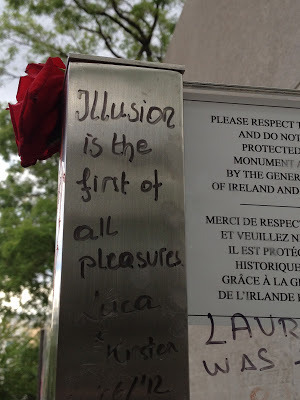 Illusion
is the
first of
all
pleasures
Luca
&
Kirsten
/'12
PLEASE RESPECT T
AND DO NOT
PROTECTED
MONUMENT A
BY THE GENER
OF IRELAND AND
MERCI DE RESPECT
ET VEUILLEZ N
IL EST PROTÉG
HISTORIQUE
GRÂCE À LA G
DE L'IRLANDE
LAUR
WAS